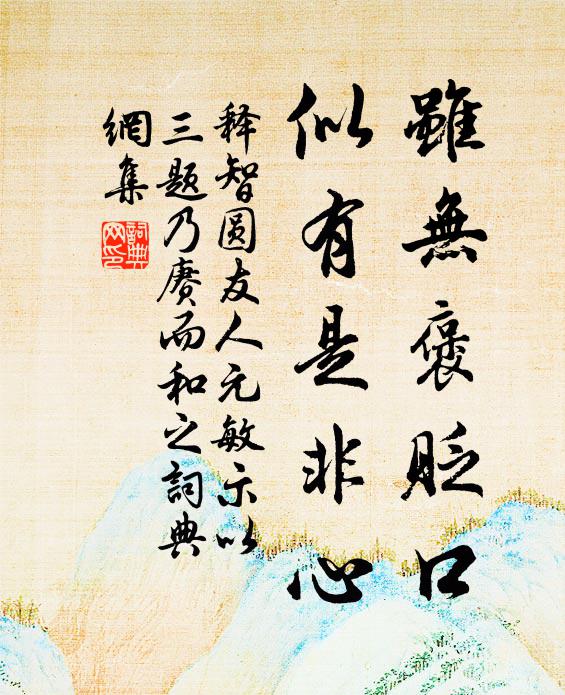 雖無褒貶口
似有是非心
释智圆友人元敏示以
三题乃赓而和之詞典
網集
詞典网印